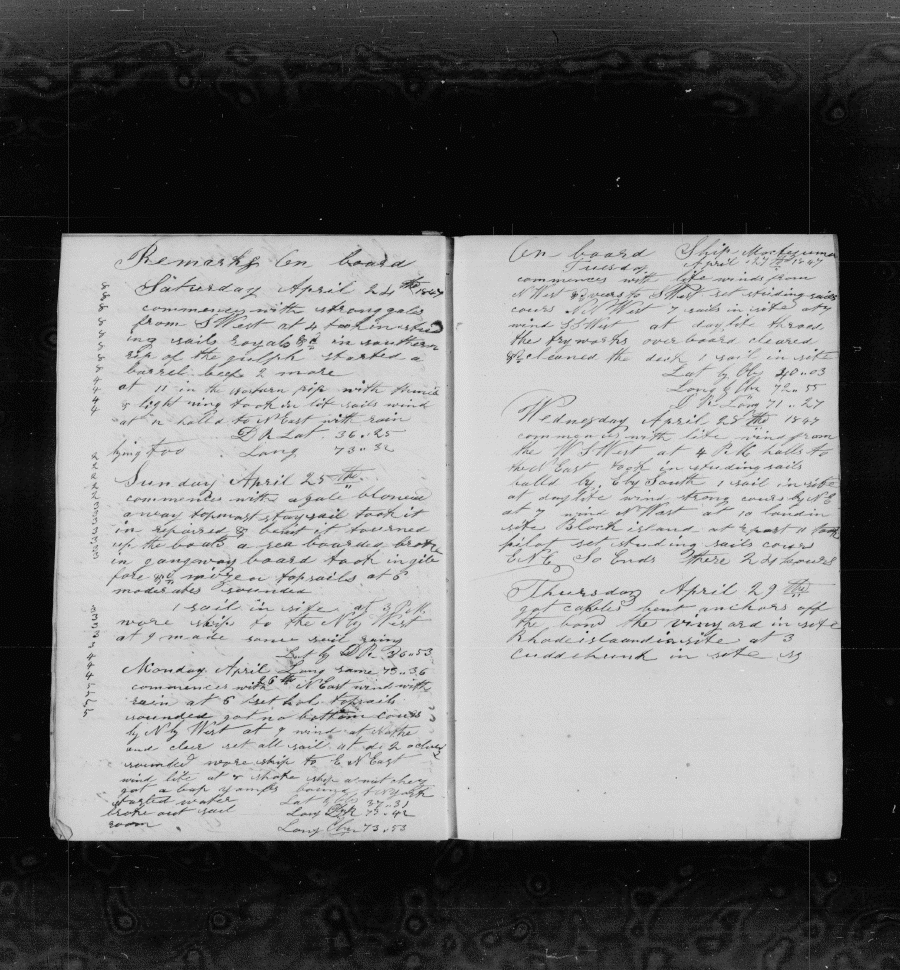 Remarks On board
Saturday April 24th 1847
commences with strong gales
from S West at 4 took in stud
ing sails royals &c in southern
rip of the gulph started a
barrel beef 2 more
at 11 in the with
& lightning took in lit sails wind
at 12 halled to N East with rain
D R Lat 36..25
lying too Long 73..32
Sunday April 25th
commences with a gale blowed
away topmast staysail took it
in repaired & bent it turned
up the boats a sea boarded broke
in gangway board took in jib
fore & topsails at 6
moderates sounded
1 sail in site at 3 P.M.
wore ship to the N by West
at 9 made some sail rainy
Lat by D R. 36..53
Monday April Long same 73..36
26th
commences with N East wind with
rain at 6 set hol topsails
sounded got no bottom cours
by N by West at 9 wind at
and cleer set all sail at 2 oclock
sounded wore ship to E N East
wind lite at 8 ship
got a bag yamps bound to N York
started water Lat by Ob 37..31
broke out sail Long D.R 73..42
room Long Cbr 73..53
On board Ship Moctezuma
Tuesday April 27th 1847
commences with lite winds from
N West & overs to S West set studing sails
cours N N West 7 sails in site at 7
wind S S West at daylite throad
the tryworks over board cleared
& cleaned the deck 1 sail in site
Lat by Ob 40..03
Long by Cbr 72..55
D. R. Lon 71..27
Wednesday April 28th 1847
commences with lite wind from
the W S West at 4 P.M. halls to
the N East took in studing sails
halld by E by South 1 sail in site
at daylite wind strong cours by N E
at 7 wind N West at 10 land in
site Block island at past 11 took
pilot set studing sails cours
E N E So Ends there 24 hours
Thursday April 29th
got cables bent anchors off
the bow the vinyard in site
Rhodeislaand in site at 3
Cuddehunk in site